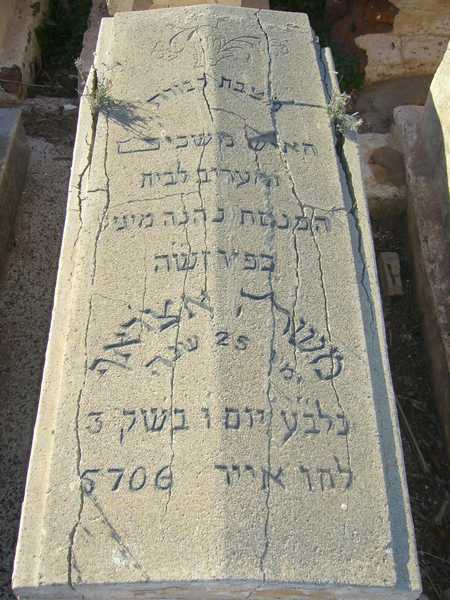 מצבת קבורת
האיש משכים
ומעריב לבית
הכנסת נהנה מיגי
כפיו זשה
משה אזראל
בן 25 שנה
נלבע יום ו בשק 3
לחו אייר 5706